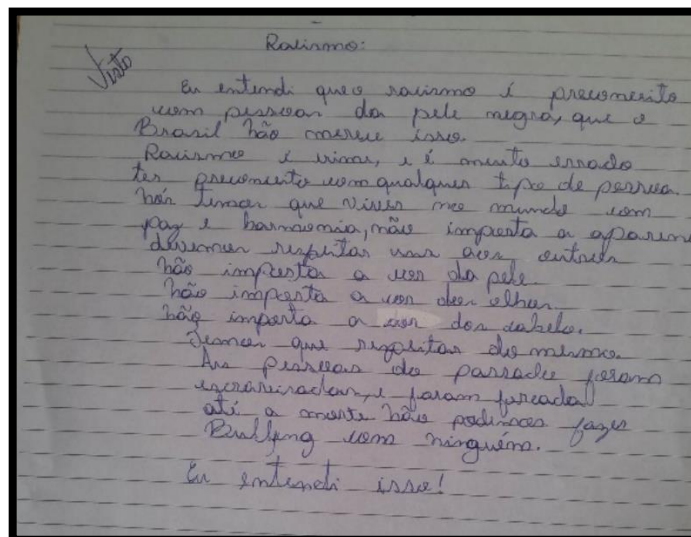 Racismo:
Visto
Eu entendi que o racismo é preconceito
com pessoas da pele negra, que o
Brasil não merece isso.
Racismo é crime, e é muito errado
ter preconceito com qualquer tipo de pessoa.
nós temos que viver no mundo com
paz e harmonia, não importa a aparen
devemos respeitar uns aos outros
não importa a cor da pele
não importa a cor dos olhos
não importa a cor dos cabelo.
Temos que respeitar do mesmo.
As pessoas do passado foram
escravizadas, e foram forcadas
até a morte não podemos fazer
Bullyng com ninguém.
Eu entendi isso!